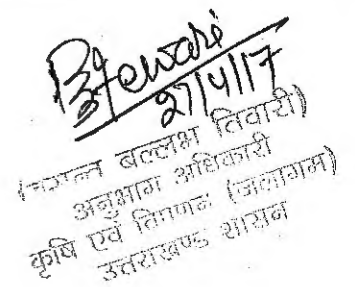 BTewari
27/4/17
(बसन्त बल्लभ तिवारी)
अनुभाग अधिकारी
कृषि एवं विपणन (जलागम)
उत्तराखण्ड शासन